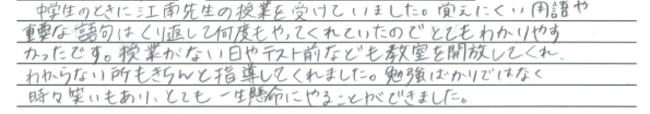 中学生のときに江南先生の授業を受けていました。覚えにくい用語や
重要な語句はくり返して何度もやってくれていたのでとてもわかりやす
かったです。授業がない日やテスト前なども教室を開放してくれ、
わからない所もきちんと指導してくれました。勉強ばかりではなく
時々笑いもあり、とても一生懸命にやることができました。